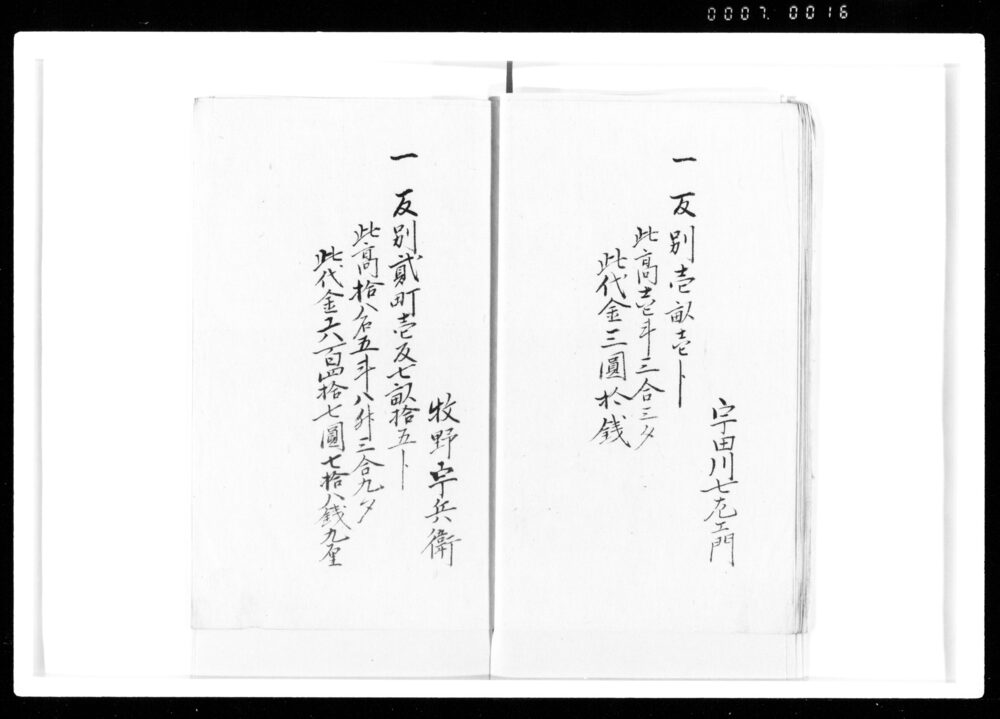 0007. 0016
宇田川七左エ門
一 反別壱畝壱卜
此高壱斗三合三夕
此代金三圓拾銭
牧野宇兵衛
一 反別貳町壱反七畝拾五卜
此高拾八石五斗八升三合九夕
此代金六百四拾七圓七拾八銭九厘